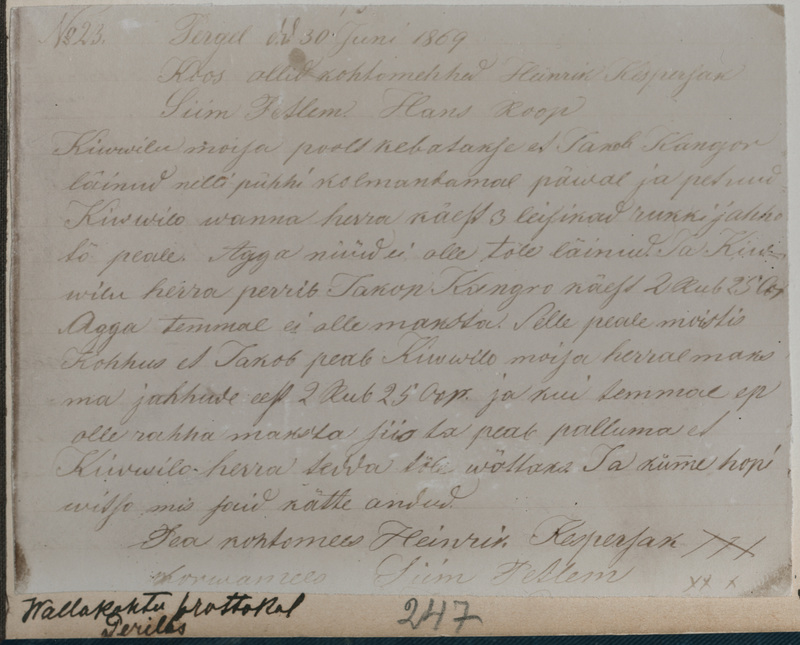 № 23. Pergel d 30 Juni 1869
Koos ollid kohtomehhed Heinrik Kespersak
Siim Petlem. Hans Koop
Kiwwilu moisa poolt kebatakse et Jakob Kangor
läinud nelli pühhi kolmantamal päwal ja petnud
Kiwwilo wanna herra käest 3 leisikad rukki jahho
tö peale. Agga nüüd ei olle töle läinud. Ja Kiw-
wilu herra perrib Jakop Kungro käest 2 Rub 25 Cop
Agga temmal ei olle maksta. Selle peale moistis
Kohhus et Jakob peab Kiwwilo moisa herral maks
ma jahhude eest 2 Rub 25 Cop. ja kui temmal ep
olle rahha maksta siis ta peab palluma et
Kiwwilo herra tedda töle wõttaks Ja kümme hopi
witso mis said kätte andud.
Pea kohtomees Heinrik Kespersak XXX
Korwamees Siim Petlem xx x
Wallakohtu prottokol
Perilas
247